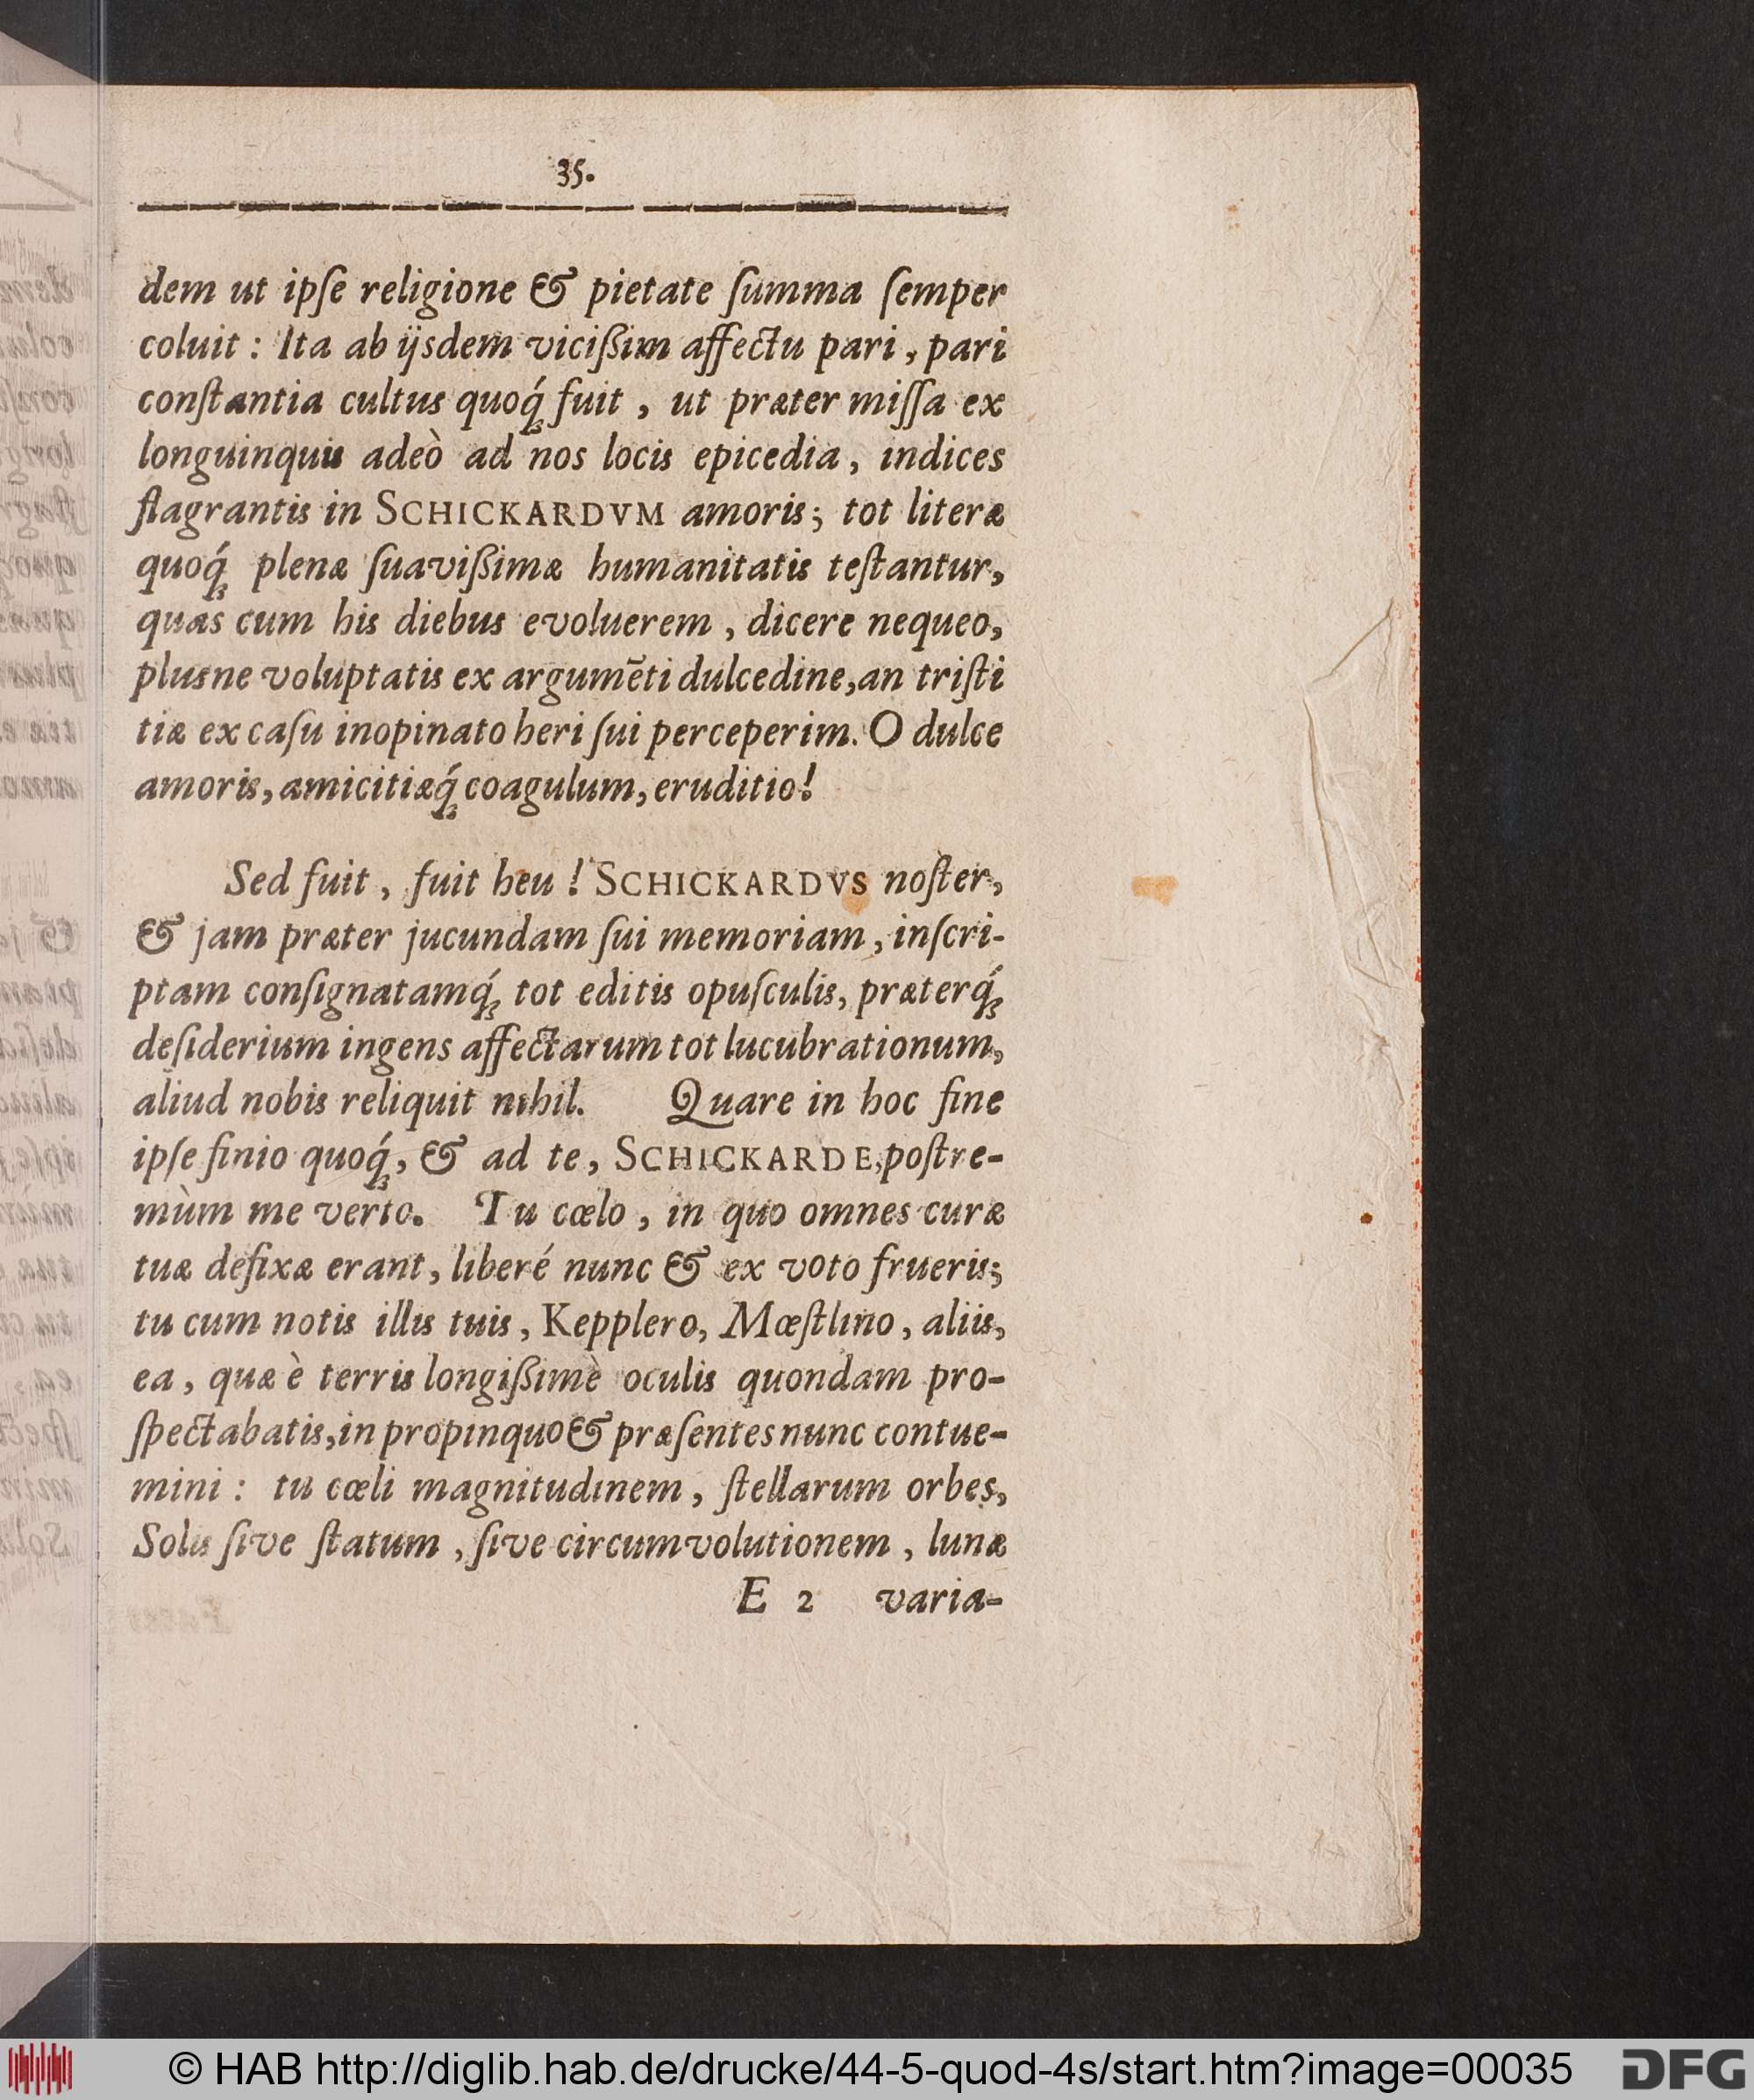 35.
dem ut ipſe religione & pietate ſumma ſemper
coluit : Ita ab ijsdem viciſsim affectu pari, pari
conſtantia cultus quoq́; fuit, ut præter miſſa ex
longuinquis adeò ad nos locis epicedia, indices
flagrantis in SCHICKARDVM amoris; tot literæ
quoq́; plenæ ſuaviſsimæ humanitatis teſtantur,
quas cum his diebus evoluerem, dicere nequeo,
plusne voluptatis ex argumēti dulcedine, an triſti
tiæ ex caſu inopinato heri ſui perceperim. O dulce
amoris, amicitiæq́; coagulum, eruditio!
Sed fuit, fuit heu ! SCHICKARDVS noſter,
& jam præter jucundam ſui memoriam, inſcri-
ptam conſignatamq́; tot editis opuſculis, præterq́;
deſiderium ingens affectarum tot lucubrationum,
aliud nobis reliquit nihil. Quare in hoc fine
ipſe finio quoq́;, & ad te, SCHICKARDE, poſtre-
mùm me verto. Tu cœlo, in quo omnes curæ
tuæ defixæ erant, liberé nunc & ex voto frueris;
tu cum notis illis tuis, Kepplero, Mœſtlino, aliis,
ea, quæ è terris longiſsimè oculis quondam pro-
ſpectabatis, in propinquo & præſentes nunc contue-
mini : tu cœli magnitudinem, ſtellarum orbes,
Solis ſive ſtatum, ſive circumvolutionem, lunæ
E 2 varia-
© HAB http://diglib.hab.de/drucke/44-5-quod-4s/start.htm?image=00035
DFG